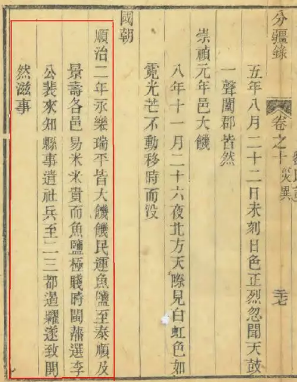 分疆錄
卷之十 災異
五年八月二十二日未刻日色正烈忽聞天鼓
一聲闔郡皆然
崇禎元年邑大饑
八年十一月二十六夜北方天際見白虹色如
霓光芒不動移時而没
國朝
順治二年永樂瑞平皆大饑饑民運魚鹽至泰順及
景壽各邑易米米貴而魚鹽極賤時閩藩選李
公裴來知縣事遣社兵至二三都遏糴遂致閧
然滋事